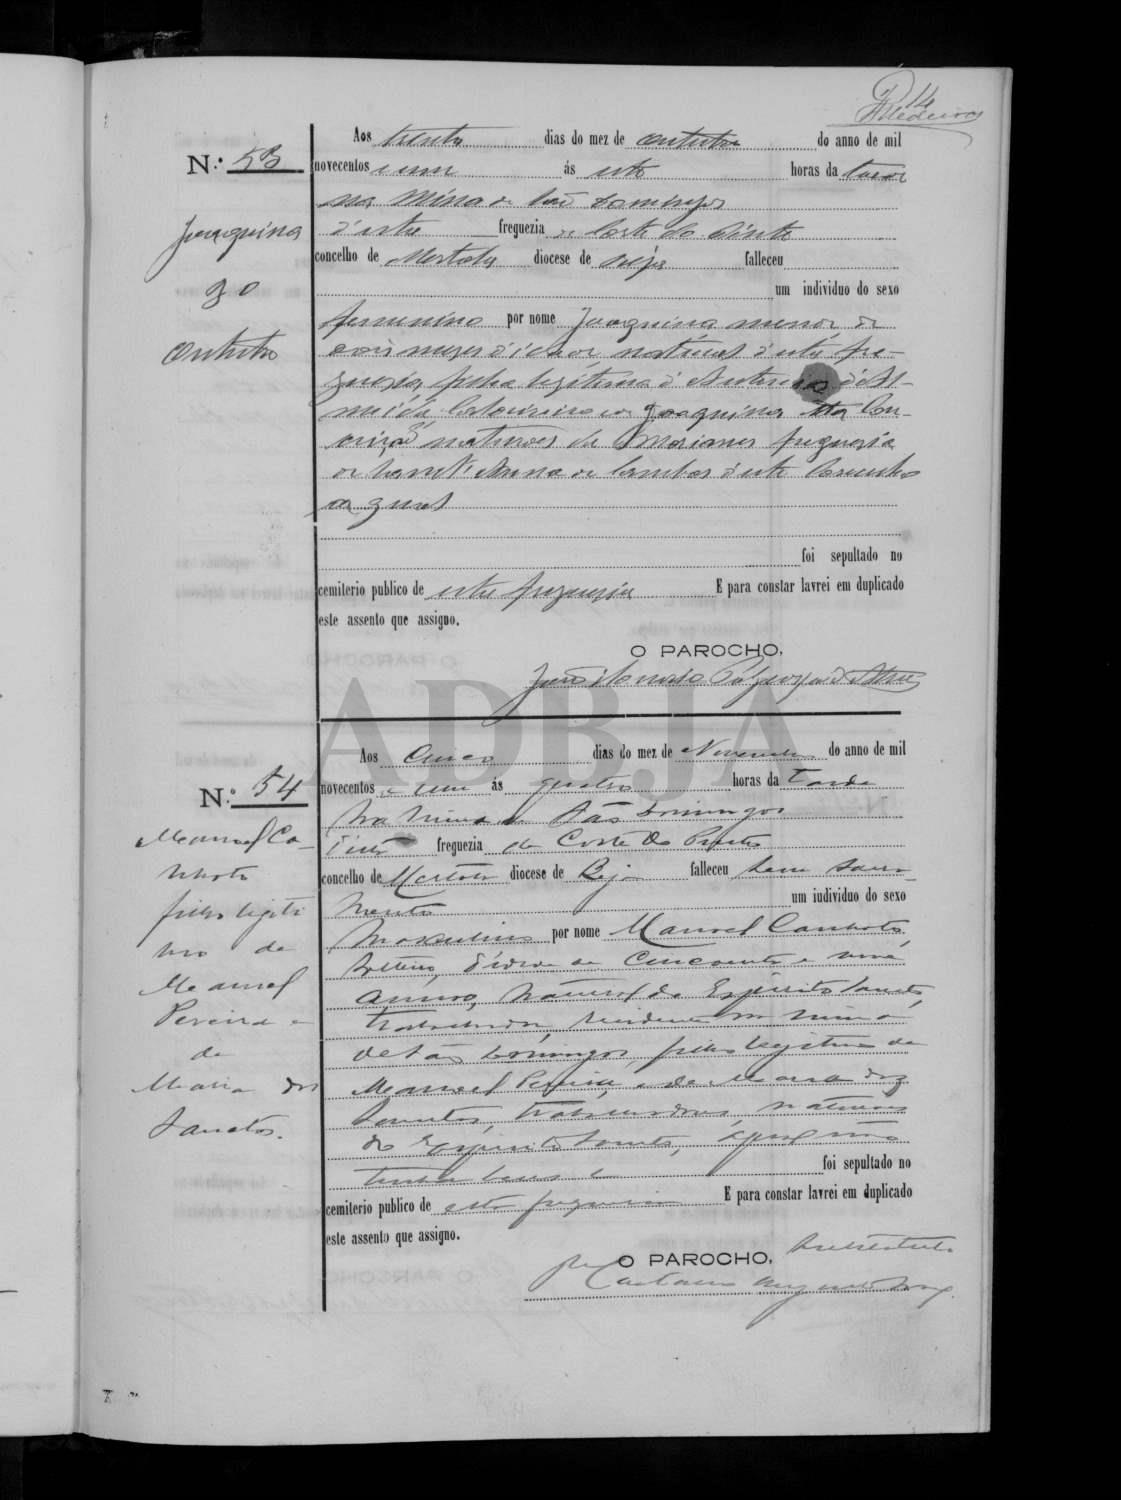 14
Medeiros
N.º 53
Joaquina
30
outubro
Aos trinta dias do mez de outubro do anno de mil
novecentos e um ás sete horas da tarde
na Mina de São Domingos
d'esta freguezia de Corte do Pinto
concelho de Mertola diocese de Beja falleceu
um individuo do sexo
femenino por nome Joaquina menor de
dois mezes d'idade, natural d'esta fre-
guezia, filha legitima d'Antonio d'Al-
meida, e de Joaquina da Con-
ceição naturaes de freguesia
de Sant'Anna de Cambas d'este Concelho
a qual
foi sepultado no
cemiterio publico de esta freguesia E para constar lavrei em duplicado
este assento que assigno.
O PAROCHO,
João
ADBJA
N.º 54
Manoel Ca-
nhoto
filho legiti
mo de
Manoel
Pereira e
de
Maria dos
Santos.
Aos cinco dias do mez de Novembro do anno de mil
novecentos e um ás quatro horas da tarde
na mina de São Domingos
d'esta freguezia de Corte do Pinto
concelho de Mertola diocese de Beja falleceu sem sacra-
mentos um individuo do sexo
masculino por nome Manoel Canhoto,
solteiro, d'idade de cincoenta e um
annos, natural do Espirito Santo,
trabalhador, residente na mina
de São Domingos, filho legitimo de
Manoel Pereira e de Maria dos
Santos, trabalhadores, naturaes
do Espirito Santo, o qual não
tinha bens e foi sepultado no
cemiterio publico de esta freguesia E para constar lavrei em duplicado
este assento que assigno.
O PAROCHO,
Caetano Augusto